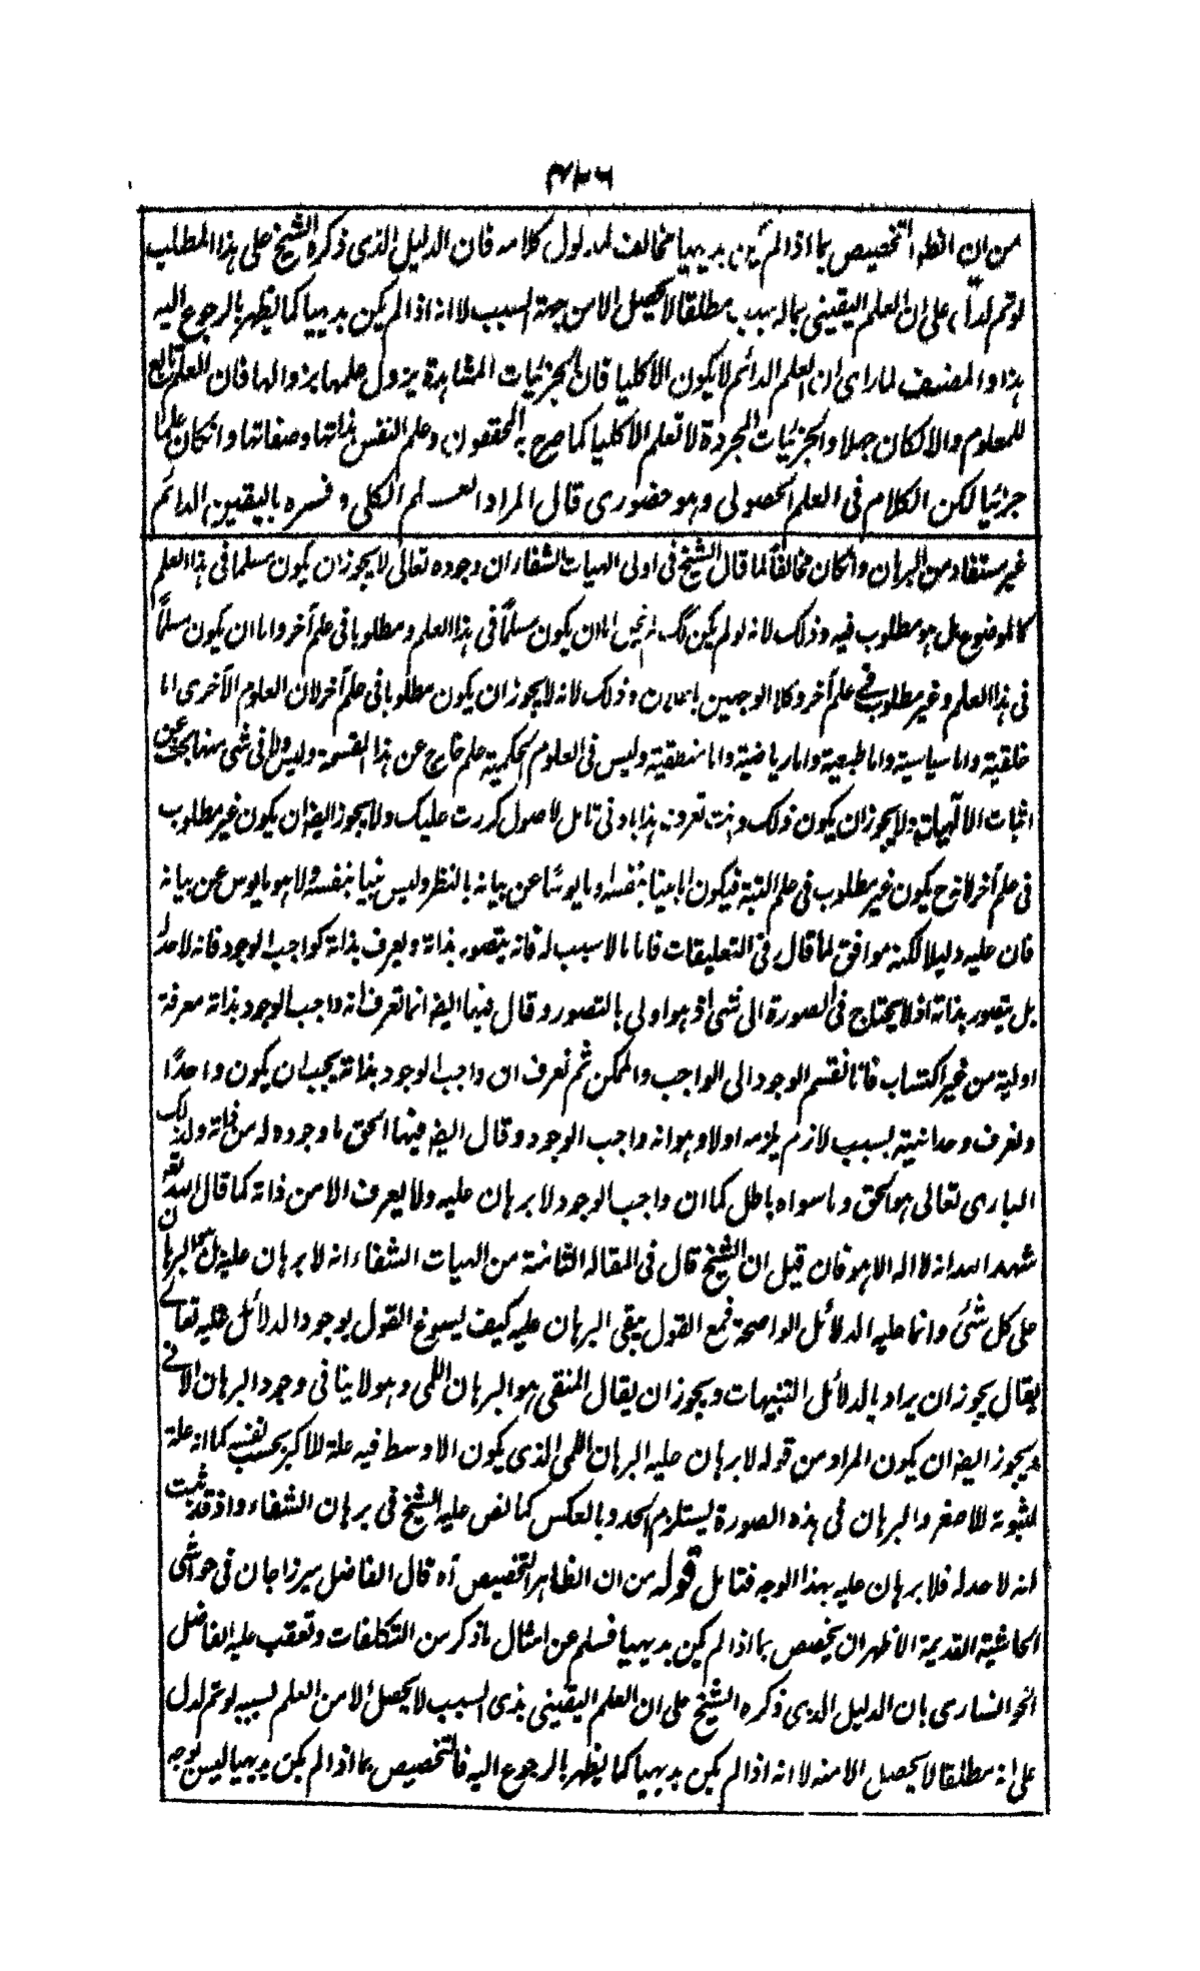 ٣٢٦
من ان الظاهر التخصيص بما اذا لم يكن بديهيا مخالف لمدلول كلامه فان الدليل الذى ذكره الشيخ على هذا المطلب
لو تم لدل على ان العلم اليقينى بماله سبب مطلقا لا يحصل الا من جهة السبب لا انه اذا لم يكن بديهيا كما يظهر بالرجوع اليه
هذا والمصنف لما راى ان العلم الدائم لا يكون الا كليا فان الجزئيات المشاهدة يزول علمها بزوالها فان العلم تابع
للمعلوم والا لكان جهلا والجزئيات المجردة لا تعلم الا كليا كما صرح به المحققون وعلم النفس بذاتها وصفاتها وان كان علما
جزئيا لكن الكلام فى العلم الحصولى وهو حضورى قال المراد العلم الكلى وفسره باليقين الدائم
غير مستفاد من البرهان وان كان مخالفا لما قال الشيخ فى اولى الهيات الشفاء ان وجوده تعالى لا يجوز ان يكون مسلما فى هذا العلم
كالموضوع بل هو مطلوب فيه وذلك لانه لو لم يكن كك لم يخل اما ان يكون مسلماً فى هذا العلم ومطلوبا فى علم آخر واما ان يكون مسلماً
فى هذا العلم وغير مطلوب فى علم آخر وكلا الوجهين باطلان وذلك لانه لا يجوز ان يكون مطلوبا فى علم آخر لان العلوم الآخرى اما
خلقية واما سياسية واما طبعية واما رياضية واما منطقية وليس فى العلوم الحكمية علم خارج عن هذا القسمة وليس ولا فى شى منها يبحث عن
اثبات الا لٓهيات ولا يجوز ان يكون ذلك وانت تعرف هذا بادنى تامل لاصول كررت عليك ولا يجوز ايضا ان يكون غير مطلوب
فى علم آخر لانه ح يكون غير مطلوب فى علم البتة فيكون اما بينا بنفسه او مايوسا عن بيانه بالنظر وليس بينا بنفسه ولا هو مايوس عن بيانه
فان عليه دليلا لكنه موافق لما قال فى التعليقات فاما ما لا سبب له فانه يتصور بذاته ويعرف بذاته كواجب الوجود فانه لا حد له
بل يتصور بذاته اذ لا يحتاج فى الصورة الى شى اذ هو اولى بالتصور وقال فيها ايضا انما تعرف انه واجب الوجود بذاته معرفة
اولية من غير اكتساب فانا نقسم الوجود الى الواجب والممكن ثم نعرف ان واجب الوجود بذاته يجب ان يكون واحداً
ونعرف وحدانيته بسبب لازم يلزمه اولا وهو انه واجب الوجود وقال ايضا فيها الحق ما وجوده له من ذاته ولذلك
البارى تعالى هو الحق وما سواه باطل كما ان واجب الوجود لا برهان عليه ولا يعرف الا من ذاته كما قال الله تع
شهد الله انه لا اله الا هو فان قيل ان الشيخ قال فى المقاله الثامنة من الهيات الشفاء انه لا برهان عليه بل هو البرهان
على كل شئ وانما عليه الدلائل الواضحة فمع القول بنفى البرهان عليه كيف يسوغ القول بوجود الدلائل عليه تعالى
يقال يجوز ان يراد بالدلائل التنبيهات ويجوز ان يقال المنفى هو البرهان اللمى وهو لا ينافى وجود البرهان الانى
ويجوز ايضا ان يكون المراد من قوله لا برهان عليه البرهان اللمى الذى يكون الاوسط فيه علة للاكبر بحسب نفسه كما انه علة
لثبوته للاصغر والبرهان فى هذه الصورة يستلزم الحد وبالعكس كما نص عليه الشيخ فى برهان الشفاء واذ قد ثبت
انه لا حد له فلا برهان عليه بهذا الوجه فتامل قوله من ان الظاهر التخصيص آه قال الفاضل ميرزا جان فى حواشى
الحاشية القديمة الاظهر ان يخصص بما اذا لم يكن بديهيا فسلم عن امثال ما ذكر من التكلفات وتعقب عليه الفاضل
الخوانسارى بان الدليل الذى ذكره الشيخ على ان العلم اليقينى بذى السبب لا يحصل الا من العلم بسببه لو تم لدل
على انه مطلقا لا يحصل الا منه لا انه اذا لم يكن بديهيا كما يظهر بالرجوع اليه فالتخصيص بما اذا لم يكن بديهيا ليس بوجه